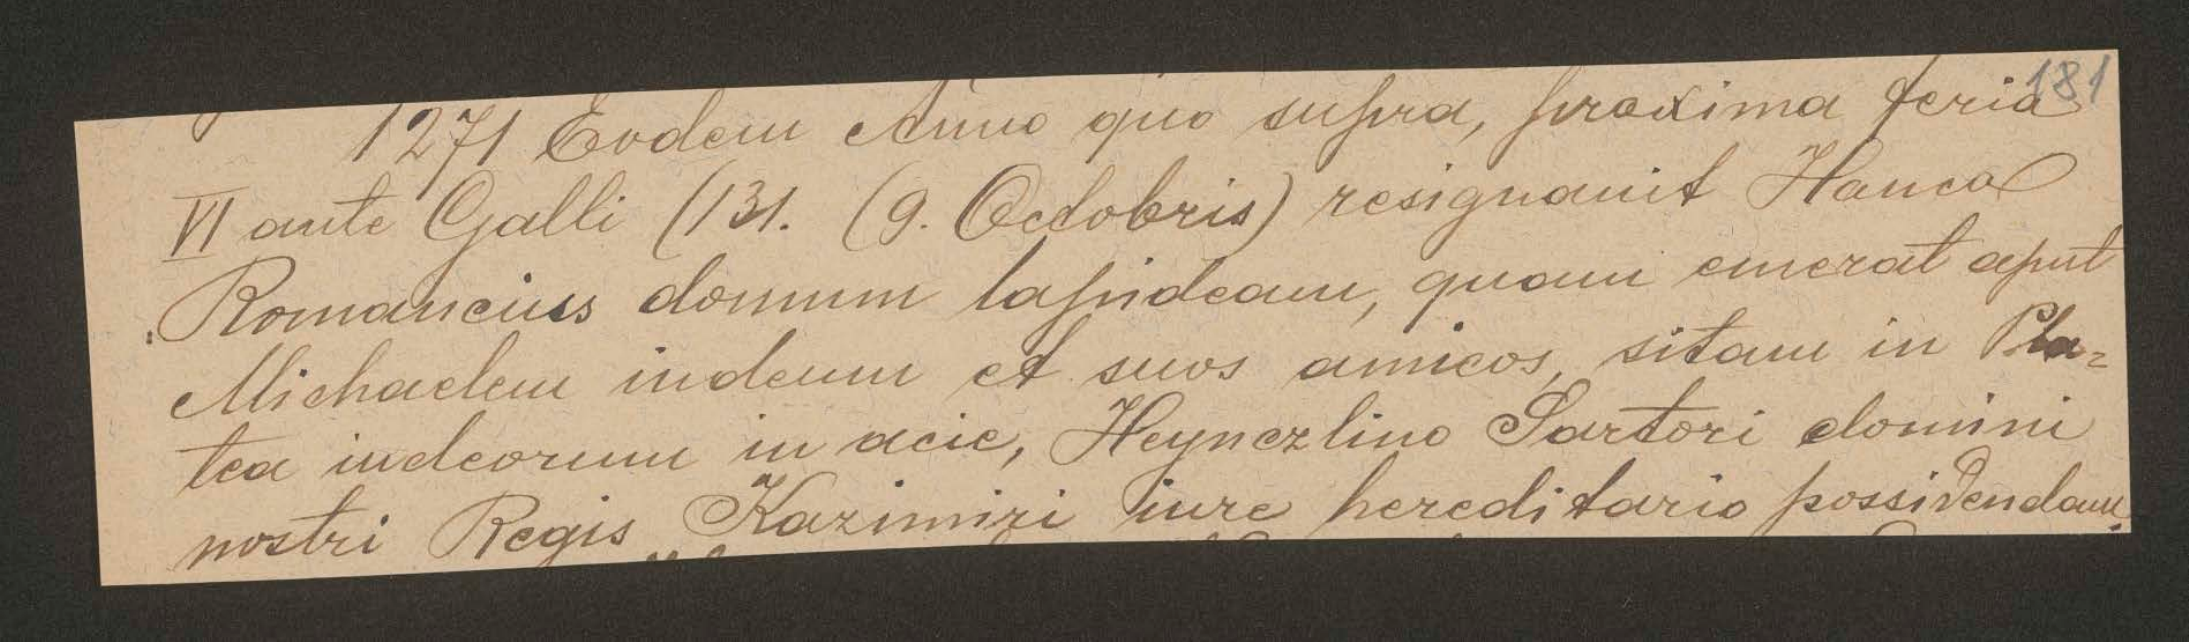 181
1271 Eodem Anno quo supra, proxima feria
VI ante Galli (131. (9. Octobris) resignauit Hanco
Romanciuss domum lapideam, quam emerat aput
Michaelem iudeum et suos amicos, sitam in Pla=
tea iudeorum in acie, Heynczlino Sartori domini
nostri Regis Kazimiri iure hereditario possidendam.